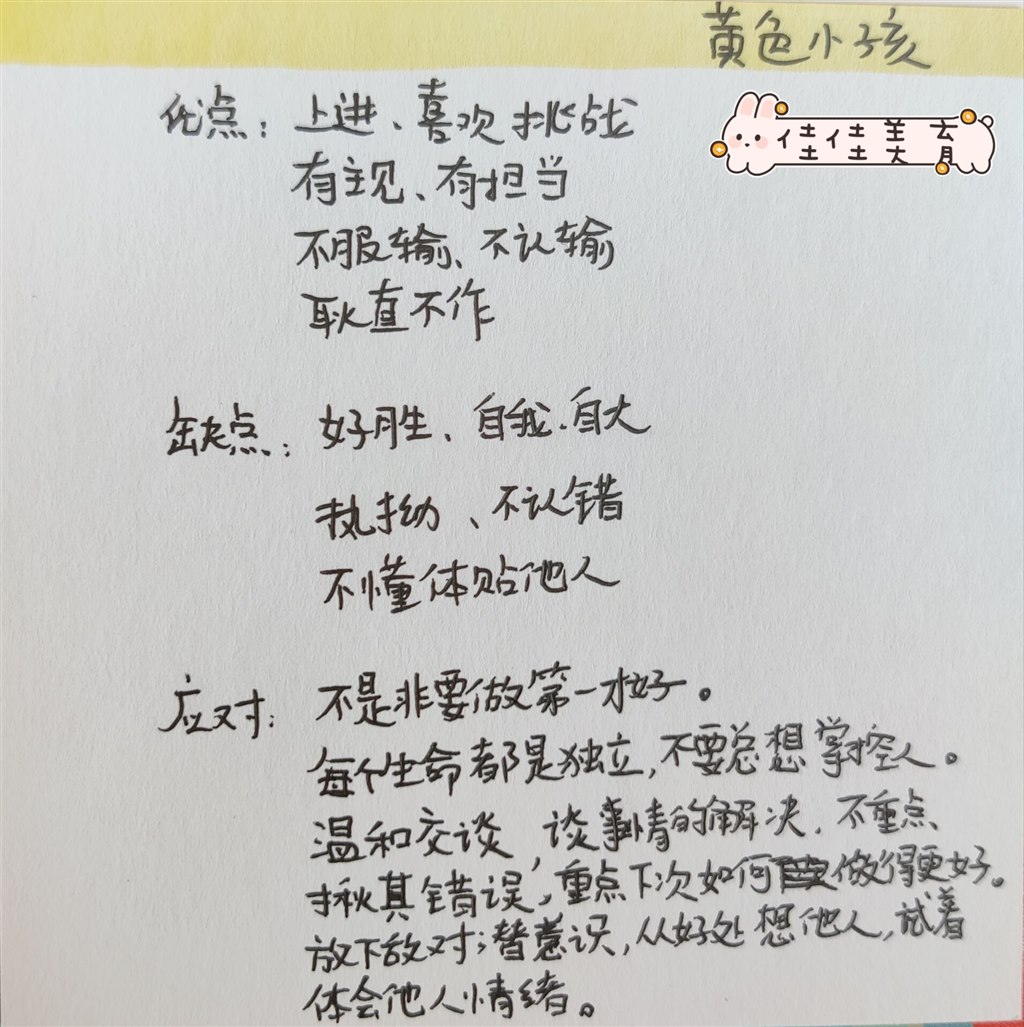 黄色小孩
佳佳美育
优点：上进、喜欢挑战
有主见、有担当
不服输、不认输
耿直不作
缺点：好胜、自我、自大
执拗、不认错
不懂体贴他人
应对：不是非要做第一才好。
每个生命都是独立，不要总想掌控人。
温和交谈，谈事情的解决，不重点
揪其错误，重点下次如何做得更好。
放下敌对；替意识，从好处想他人，试着
体会他人情绪。